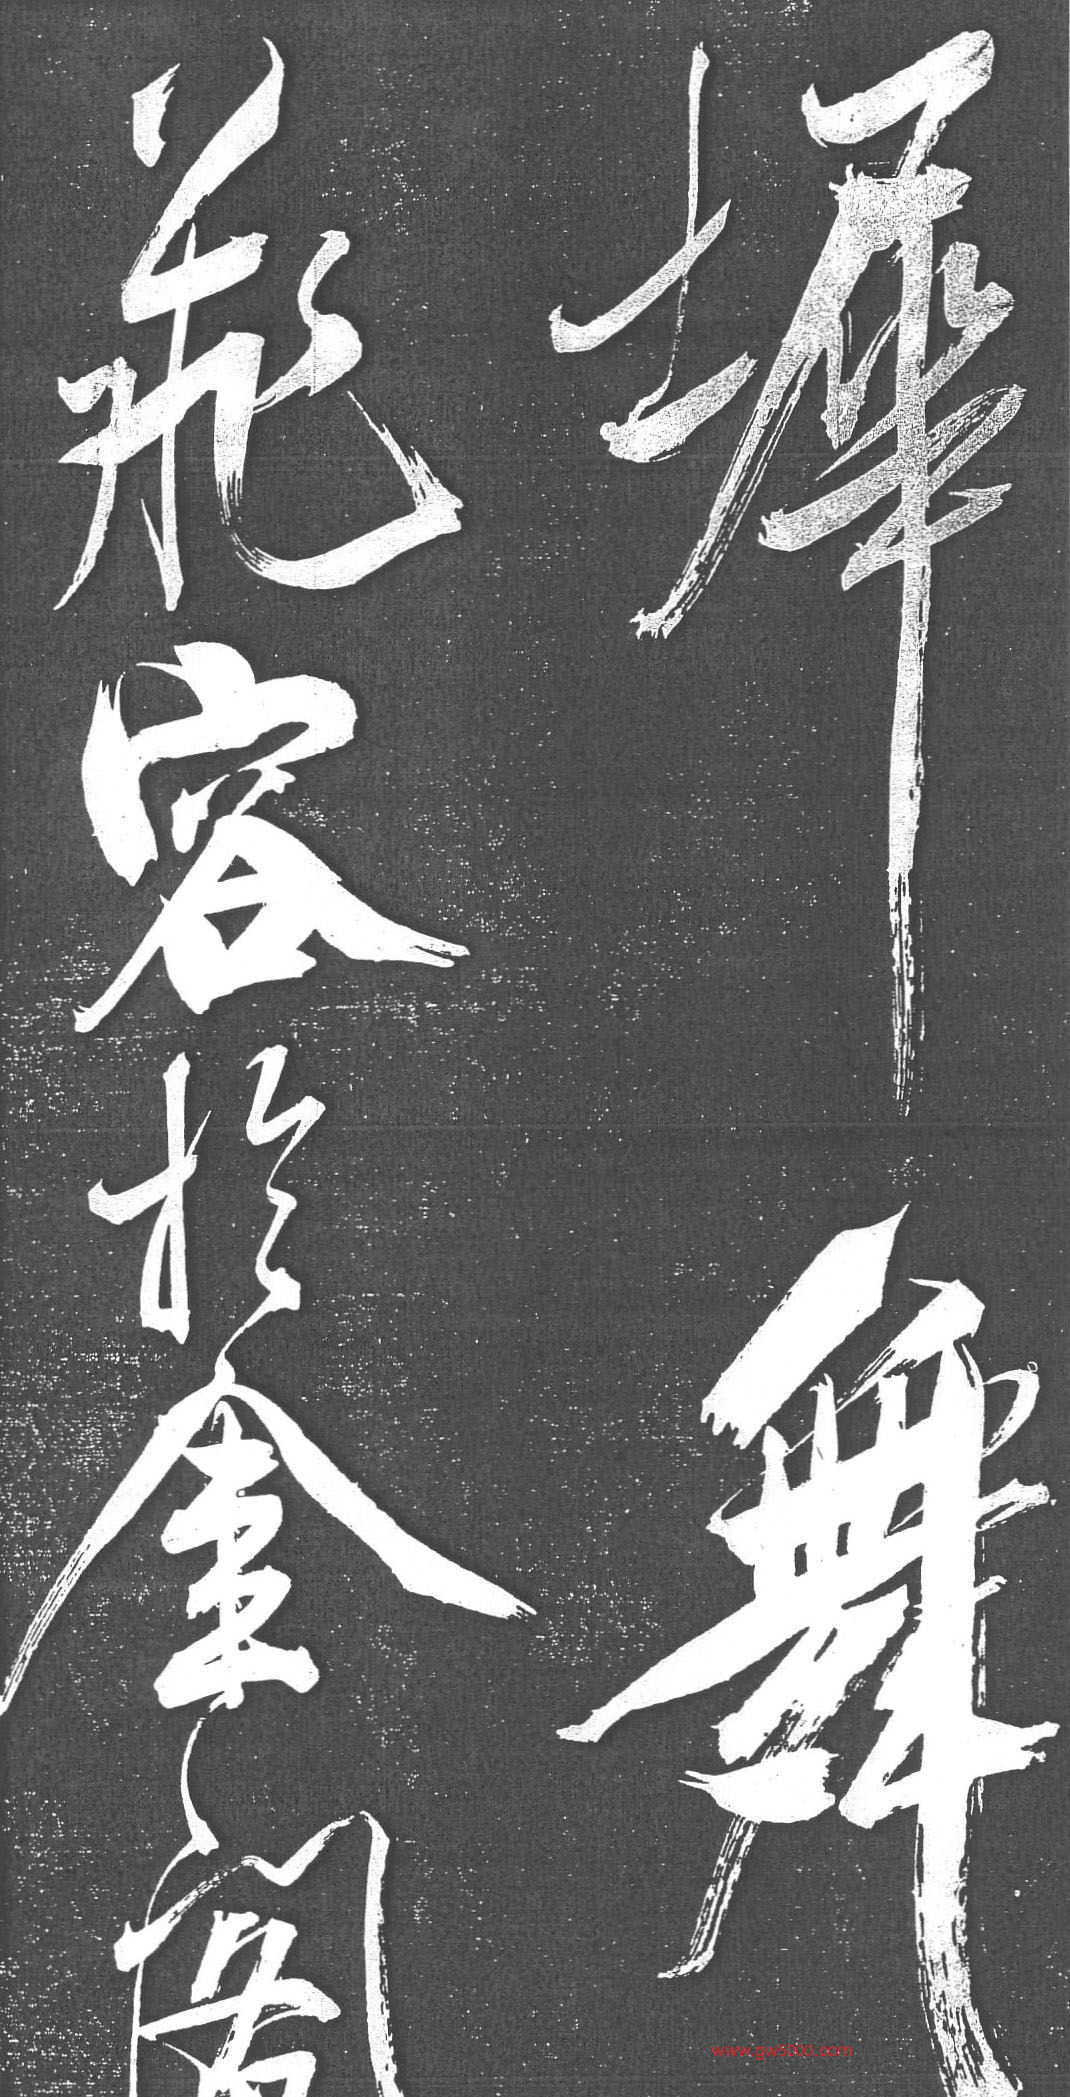 墀舞
飛容於金閣
www.gw5000.com